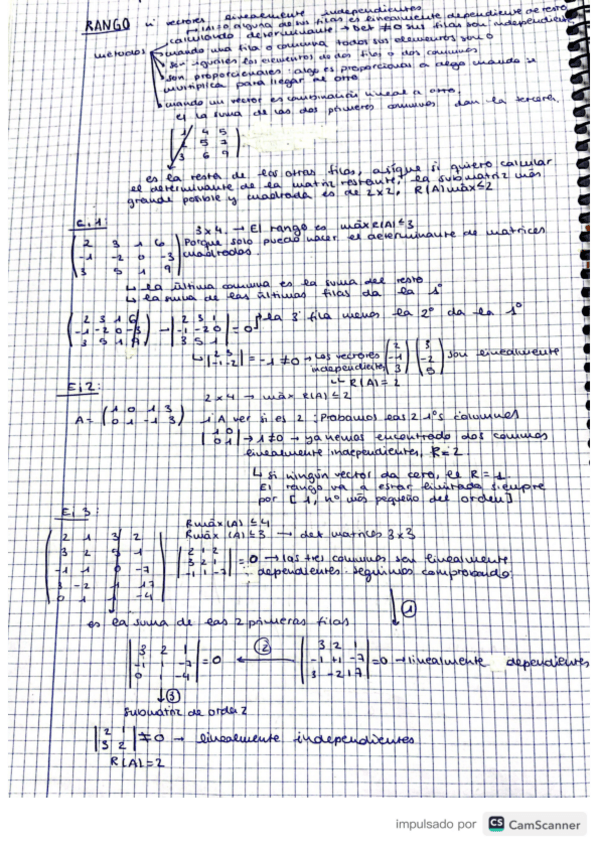 RANGO nº vectores linealmente independientes
alguna de sus filas es linealmente dependiente del resto
calculando determinante → Det ≠ 0 sus filas son independientes
métodos cuando una fila o columna todos sus elementos son 0
Son iguales los elementos de dos filas o dos columnas
Son proporcionales: algo es proporcional a algo cuando se
multiplica para llegar al otro
cuando un vector es combinación lineal a otro.
ej la suma de las dos primeras columnas dan la tercera.
1 4 5
2 5 7
3 6 9
es la resta de las otras filas, asique si quiero calcular
el determinante de la matriz restante, la submatriz más
grande posible y cuadrada es de 2x2, R(A) máx ≤ 2
Ej. 1:
3x4. → El rango es máx R(A) ≤ 3
2 3 1 6 Porque solo puedo hacer el determinante de matrices
-1 -2 0 -3 cuadradas.
3 5 1 9
↳ la última columna es la suma del resto
↳ la suma de las últimas filas da la 1º
2 3 1 6 → 2 3 1 la 3º fila menos la 2º da la 1º
-1 -2 0 -3 -1 -2 0 = 0
3 5 1 9 3 5 1
↳ |2 3| = -1 ≠ 0 → Los vectores (2) (3) son linealmente
|-1 -2| independientes (-1) (-2)
(3) (5)
↳ R(A) = 2
Ej. 2:
2x4 → máx R(A) ≤ 2
A = (1 0 1 3) A ver si es 2: Probamos las 2 1ºs columnas
(0 1 -1 3)
|1 0| → 1 ≠ 0 → ya hemos encontrado dos columnas
|0 1| linealmente independientes, R = 2.
↳ si ningún vector da cero, el R = 1.
El rango va a estar limitado siempre
por [1, nº más pequeño del orden]
Ej. 3:
Rmáx (A) ≤ 4
Rmáx (A) ≤ 3 → det matrices 3x3
2 1 3 2
3 2 5 1
-1 1 0 -7
3 -2 1 17
0 1 1 -4
|2 1 2|
|3 2 1| = 0 → las tres columnas son linealmente
|-1 1 -7| dependientes. Seguimos comprobando:
①
es la suma de las 2 primeras filas
|3 2 1| ② |3 2 1|
|-1 1 -7| = 0 ← |-1 +1 -7| = 0 → linealmente dependientes
|0 1 -4| |3 -2 17|
↓ ③
submatriz de orden 2
|2 1| ≠ 0 → linealmente independientes
|3 2|
R(A) = 2
impulsado por CS CamScanner